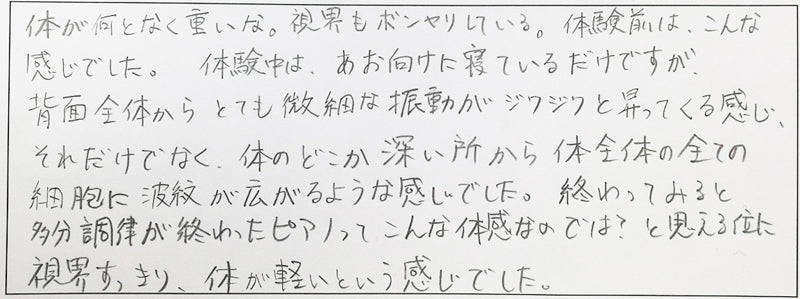 体が何となく重いな。視界もボンヤリしている。体験前は、こんな
感じでした。 体験中は、あお向けに寝ているだけですが、
背面全体からとても微細な振動がジワジワと昇ってくる感じ、
それだけでなく、体のどこか深い所から体全体の全ての
細胞に波紋が広がるような感じでした。 終わってみると
多分調律が終わったピアノってこんな体感なのでは？と思える位に
視界すっきり、体が軽いという感じでした。